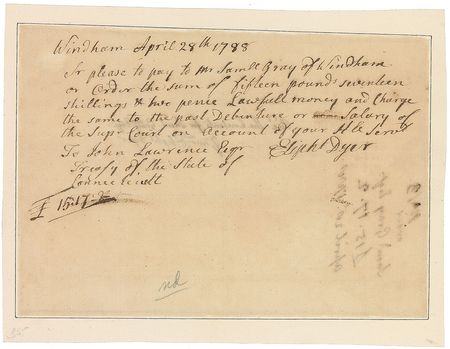 Windham April 28th 1788
Sr please to pay to Mr Samll Gray of Windham
or Order the sum of fifteen pounds seventeen
shillings & two pence Lawfull money and Charge
the same to the past Debenture or Salary of
the Supr Court on account of your H'ble Servt
To John Lawrence Esqr Elipht Dyer
Treasr of the State of
Connecticutt
£ 15:17:2
nd